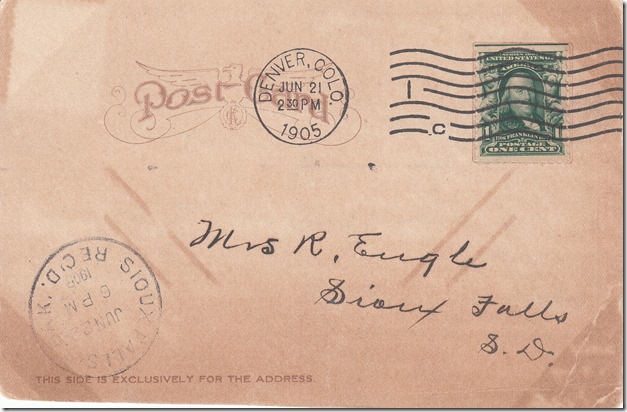 Post Card
DENVER, COLO.
JUN 21
2 30 PM
1905
1
C
UNITED STATES OF AMERICA
FRANKLIN
POSTAGE
ONE CENT
Mrs R. Engle
Sioux Falls
S. D.
SIOUX FALLS
REC'D.
6 PM
JUN
THIS SIDE IS EXCLUSIVELY FOR THE ADDRESS.